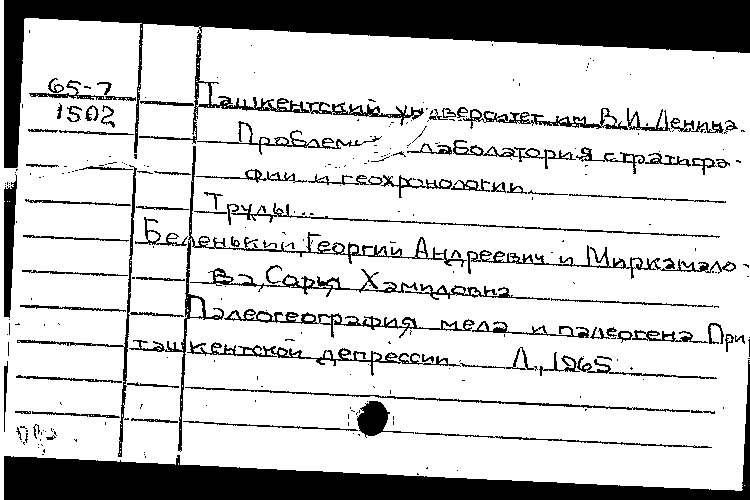 65-7
1502
Ташкентский университет им В.И. Ленина.
Проблемн лаболатория стратигра-
фии и геохронологии.
Труды...
Беленький, Георгий Андреевич и Миркамало-
ва, Сарья Хамидовна
Палеогеография мела и палеогена При
ташкентской депрессии. Л., 1965.